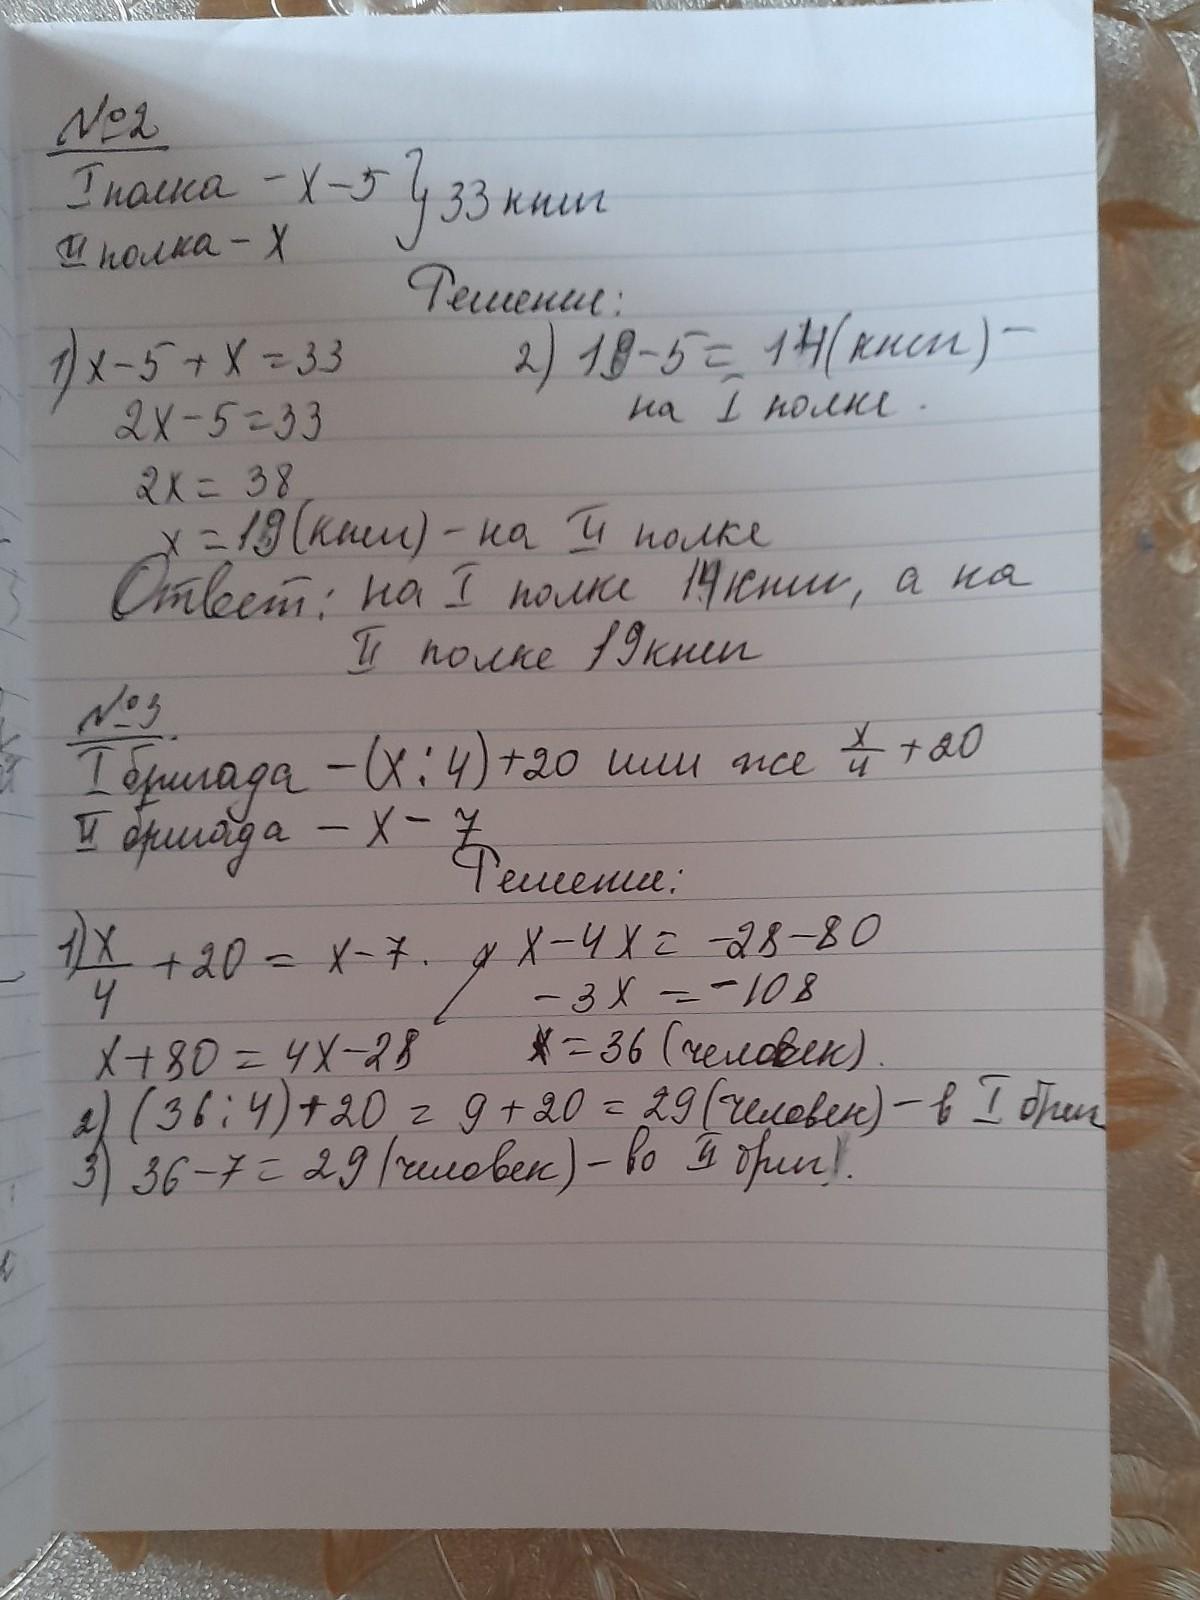 №2
I полка - x-5 } 33 книг
II полка - x
Решение:
1) x-5+x=33
2x-5=33
2x=38
x=19(книг)-на II полке
2) 19-5=14(книг)-
на I полке.
Ответ: на I полке 14книг, а на
II полке 19книг
№3.
I бригада -(x:4)+20 или же x/4+20
II бригада - x-7
Решение:
1) x/4+20=x-7.
x+80=4x-28
x-4x=-28-80
-3x=-108
x=36(человек).
2) (36:4)+20=9+20=29(человек)-в I бриг
3) 36-7=29(человек)-во II бриг.